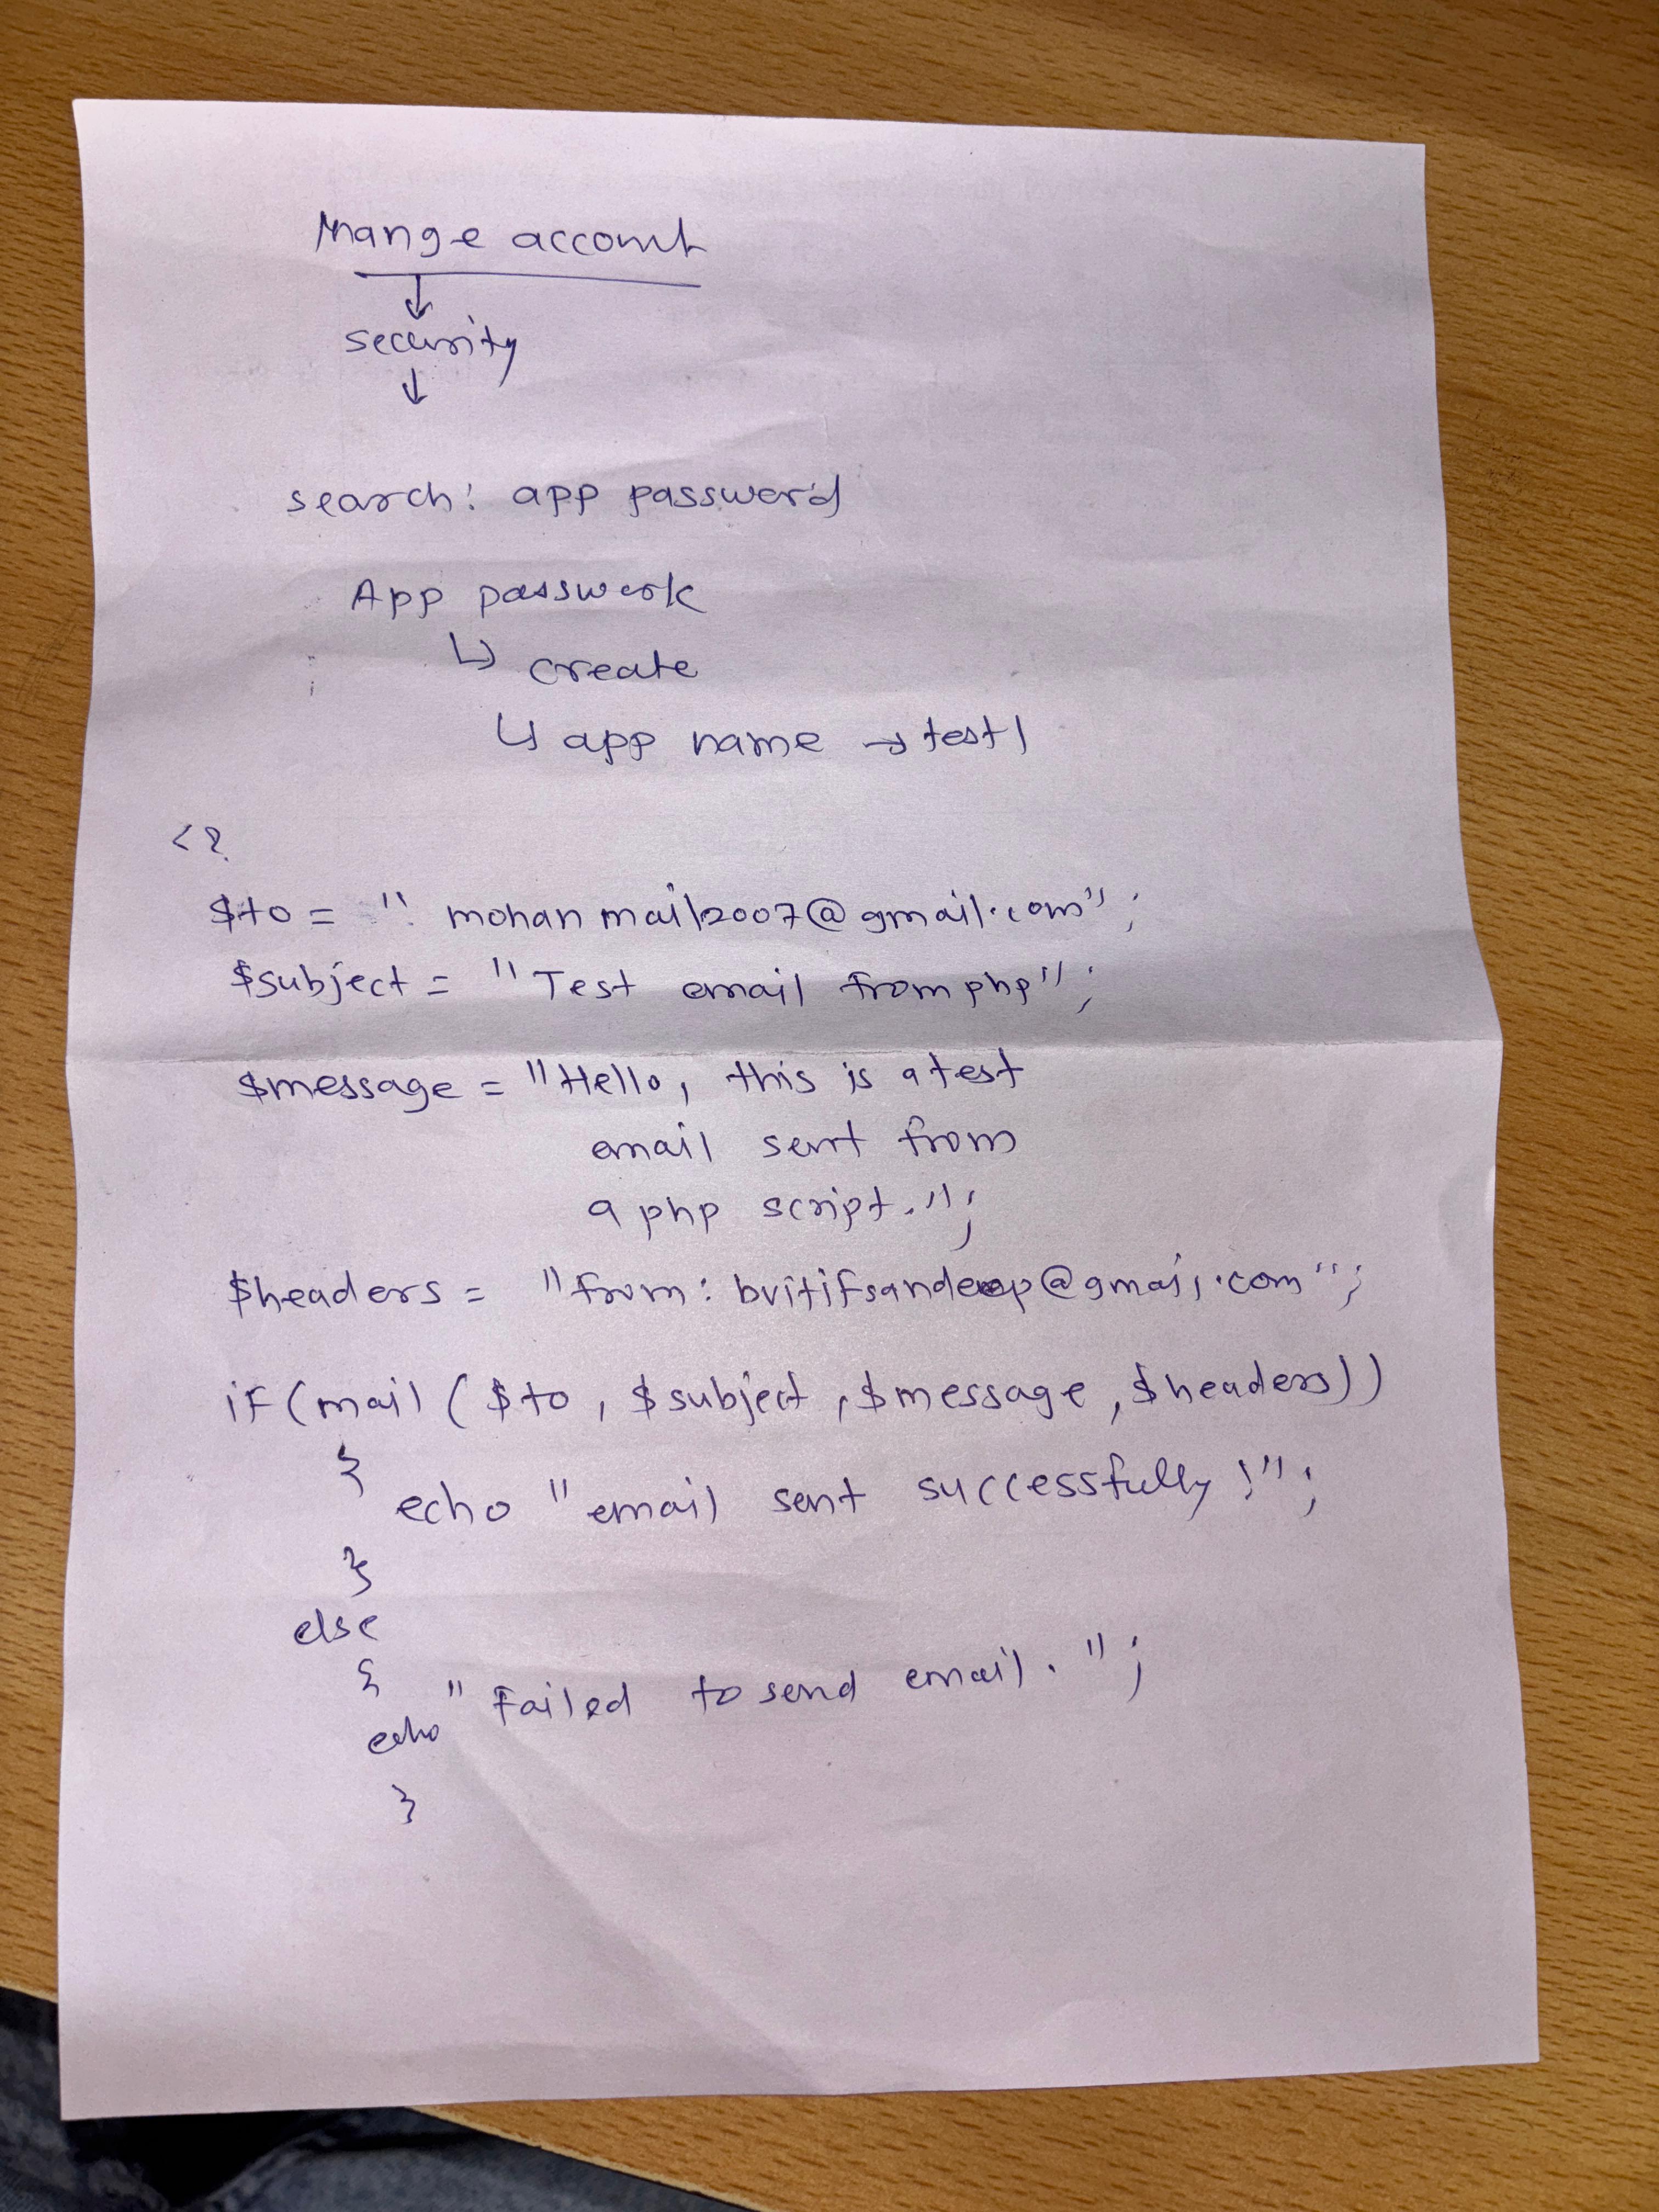 Mange account
↓
security
↓
search: app password
App passwork
↳ create
↳ app name → test1
<?
$to = " mohanmail2007@gmail.com";
$subject = "Test email from php";
$message = "Hello, this is a test
email sent from
a php script.";
$headers = "from: bvitifsandeep@gmail.com";
if(mail($to, $subject, $message, $headers))
{
echo "email sent successfully!";
}
else
{
echo "Failed to send email.";
}